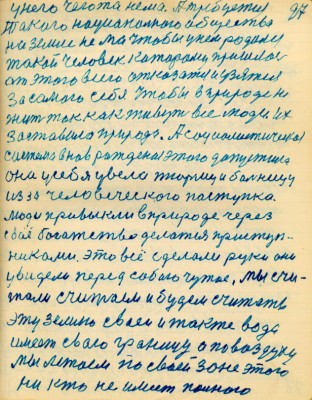 97
у него чегота нема. А требуется
такого национального общества
на земле не ма чтобы у ней родился
такой человек катораму пришлось
от этого всего отказатися и взятся
За самого себя чтобы в природе не
жить так как живут все люди их
заставила природа. А социалистическа
система внов рождена этого допустила
она у себя ввела тюрьму и больницу
из за человеческого поступка.
люди привыкли в природе через
своё богатство делатся приступ-
никами. Это всё сделали руки они
увидели перед собою чужое, мы счи-
тали считаем и будем считать
эту землю своей и также вода
имеет свою границу а по воздуху
мы летаем по своей зоне этого
ни кто не имеет полного